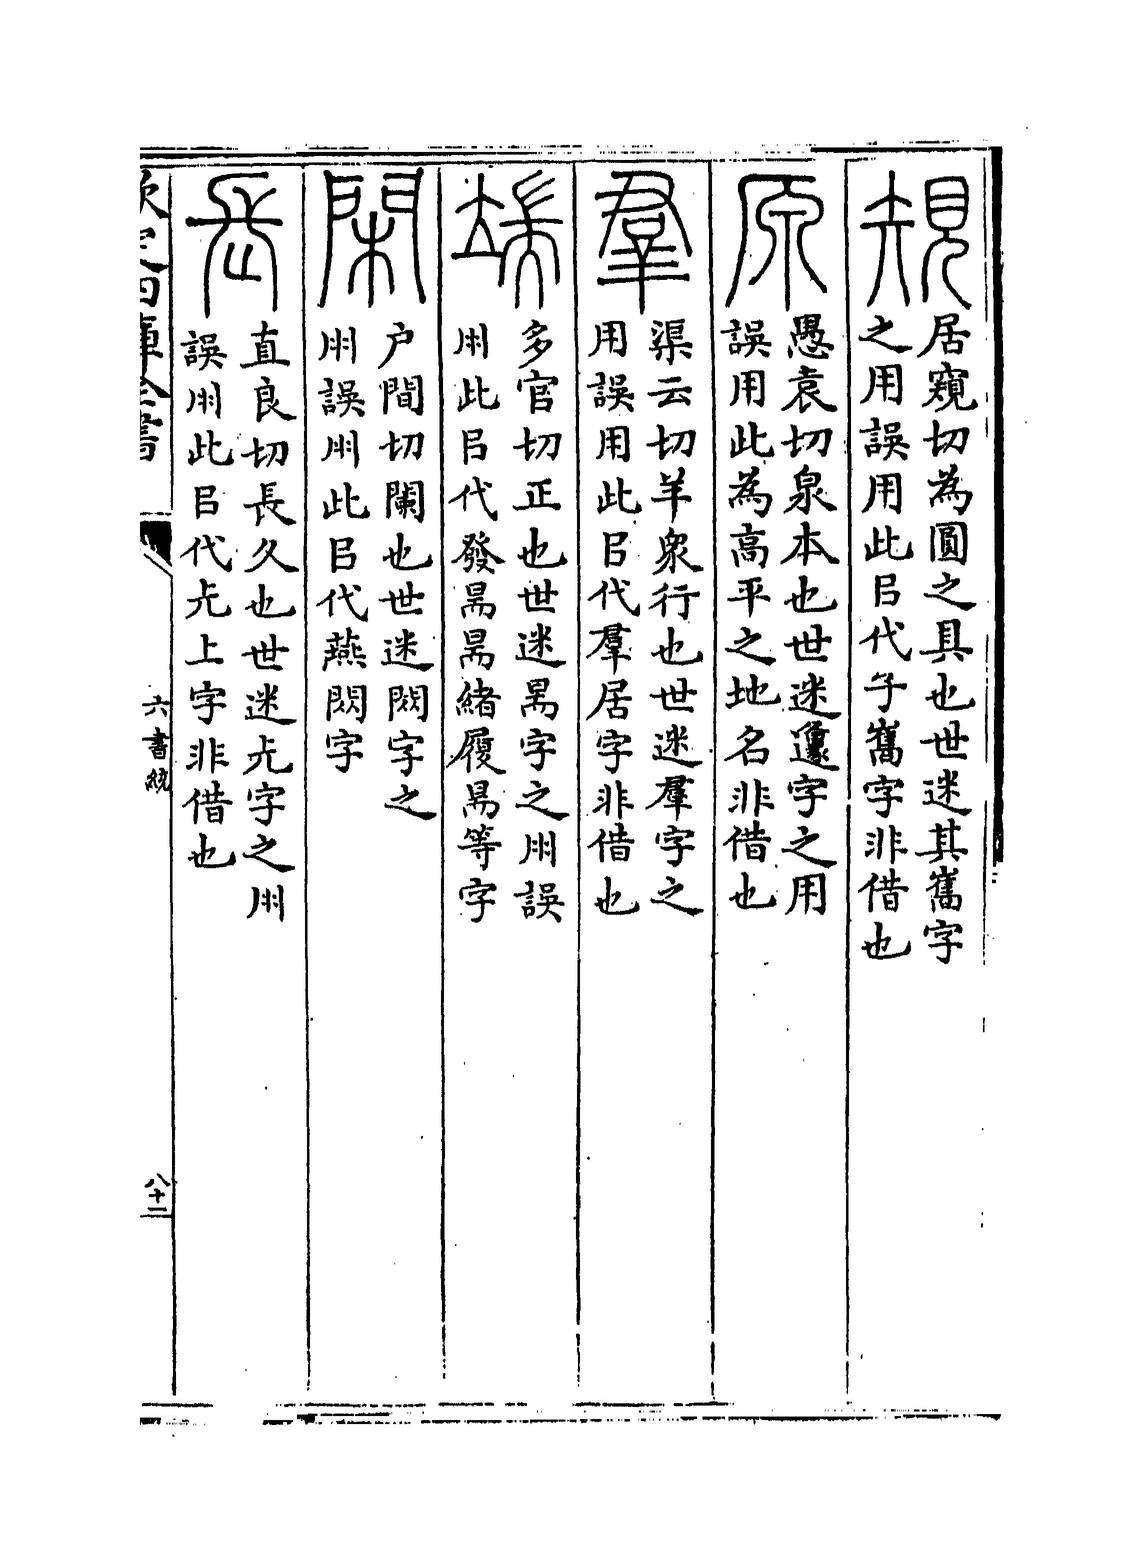 規
居窺切為圓之具也世迷其巂字
之用誤用此㠯代子巂字非借也
原
愚袁切泉本也世迷邍字之用
誤用此為高平之地名非借也
羣
渠云切羊衆行也世迷羣字之
用誤用此㠯代羣居字非借也
端
多官切正也世迷耑字之用誤
用此㠯代發耑耑緒履耑等字
閑
户間切闌也世迷閼字之
用誤用此㠯代燕閼字
長
直良切長久也世迷字之用
誤用此㠯代上字非借也
欽定四庫全書
六書統
八十二